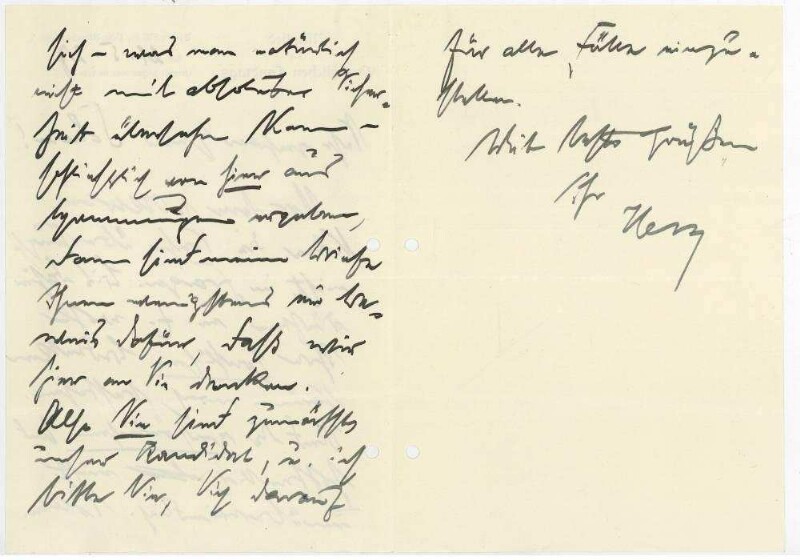 sich – was man natürlich
nicht mit absoluter Sicher-
heit übersehen kann –
schließlich von hier aus
ergeben,
dann sind meine Briefe
Ihnen wenigstens ein Be-
weis dafür, daß wir
hier an Sie denken.
Also Sie sind zunächst
unser Kandidat, u. ich
bitte Sie, Sich darauf
für alle Fälle einzu-
stellen.
Mit besten Grüßen
Ihr